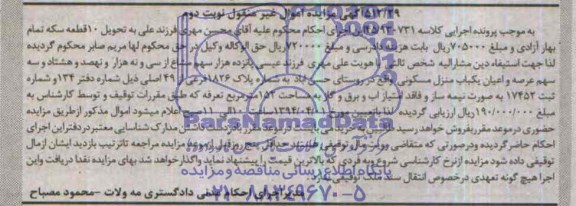 ۵۱۲/۲۹ آگهی مزایده اموال غیر منقول نوبت دوم
به موجب پرونده اجرایی کلاسه ۹۳۰۷۳۱ اجرای احکام محکوم علیه آقای محسن مهری فرزند علی به تحویل ۱۰ قطعه سکه تمام
بهار آزادی و مبلغ ۷۰۵۰۰۰ ریال بابت هزینه دادرسی و مبلغ ۷۲۰۰۰۰ ریال حق الوکاله وکیل در حق محکوم لها مریم صابر محکوم گردیده
لذا جهت استیفاء دین مشارالیه شخص ثالث هویت علی مهری فرزند عیسی پانزده هزار سهم مشاع از سی و نه هزار و نهصد و هشتاد و سه
سهم عرصه و اعیان یکباب منزل مسکونی واقع در روستای حسن آباد به شماره پلاک ۱۸۲۶ فرعی از ۴۹ اصلی ذیل شماره دفتر ۱۳۴ و شماره
ثبت ۱۷۴۵۲ به صورت نیمه ساز و فاقد امتیاز آب و برق و گاز به مساحت ۱۵۲ مترمربع تعرفه که طبق مقررات توقیف و توسط کارشناس به
مبلغ ۱۹۰/۰۰۰/۰۰۰ ریال ارزیابی گردیده ۱۳۹۴/۰۴/ ۱۱ صبح اعلام میشود اموال مذکور از طریق مزایده
حضوری در موعد مقرر بفروش خواهد رسید مدارک شناسایی معتبر در دفتر این اجرای
احکام حاضر گردیده و در صورتی که متقاضی روز قبل از روز مزایده مراجعه تا ترتیب بازدید ایشان از مال
توقیفی داده شود مزایده از نرخ کارشناسی شروع و به فردی که بالاترین قیمت را پیشنهاد نماید واگذار خواهد شد بهای مزایده نقدا دریافت و این
اجرا هیچ گونه تعهدی در خصوص انتقال سند ملک توقیفی ندارد
مدیر اجرای احکام مدنی دادگستری مه ولات - محمود مصباح
ParsNamadData
پایگاه اطلاع رسانی مناقصه و مزایده
۰۲۱-۸۸۳۴۹۶۷۰-۵